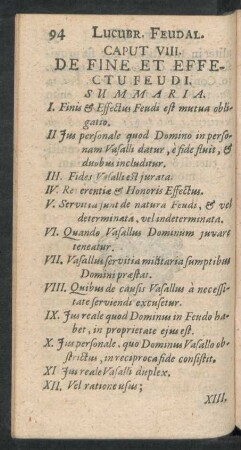 94 LUCUBR. FEUDAL.
CAPUT VIII.
DE FINE ET EFFE-
CTU FEUDI.
SUMMARIA.
I. Finis & Effectus Feudi est mutua obli-
gatio.
II Jus personale quod Domino in perso-
nam Vasalli datur, è fide fluit, &
duobus includitur.
III. Fides Vasalli est jurata.
IV. Reverentiæ & Honoris Effectus.
V. Servitia sunt de natura Feudi, & vel
determinata, vel indeterminata.
VI. Quando Vasallus Dominum juvare
teneatur.
VII. Vasallus servitia militaria sumptibus
Domini præstat.
VIII. Quibus de causis Vasallus à necessi-
tate serviendi excusetur.
IX. Jus reale quod Dominus in Feudo ha-
ber, in proprietate ejus est.
X. Jus personale, quo Dominus Vasallo ob-
strictus, in reciproca fide consistit.
XI Jus reale Vasalli duplex.
XII. Vel ratione usus;
XIII.